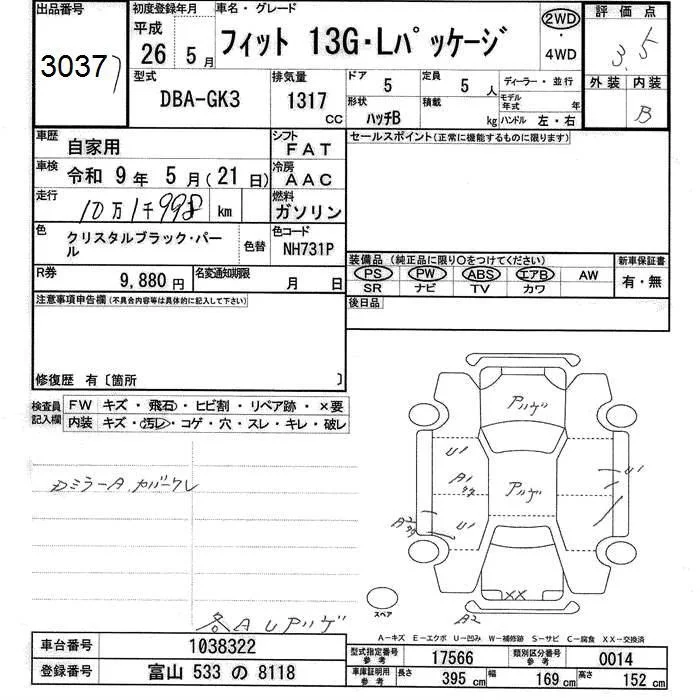 出品番号
3037
初度登録年月
平成
26 5月
車名・グレード
フィット 13G・Lパッケージ
2WD
・
4WD
評価点
3.5
外装 内装
B
型式
DBA-GK3
排気量
1317 cc
ドア
5
定員
5 人
形状
ハッチB
積載
kg
ディーラー・並行
モデル年式 年
ハンドル 左・右
車歴
自家用
シフト
FAT
車検
令和 9年 5月(21日)
冷房
AAC
走行
10万1千998 km
燃料
ガソリン
色
クリスタルブラック・パール
色替
色コード
NH731P
R券
9,880円
名変通知期限
月 日
セールスポイント(正常に機能するものに限ります)
装備品(純正品に限り○をつけてください)
PS PW ABS エアB AW
SR ナビ TV カワ
新車保証書
有・無
後日品
注意事項申告欄(不具合内容等は具体的に記入して下さい)
修復歴 有〔箇所 〕
検査員記入欄
FW キズ・飛石・ヒビ割・リペア跡・×要
内装 キズ・汚レ・コゲ・穴・スレ・キレ・破レ
DミラーA カバークレ
各AUアリゲ
アリゲ
U1
A1
アリゲ
U1
A2
U1
XX
A2
スペア
A-キズ E-エクボ U-凹み W-補修跡 S-サビ C-腐食 XX-交換済
車台番号
1038322
登録番号
富山 533 の 8118
型式指定番号
参考
17566
類別区分番号
参考
0014
車庫証明用
参考
長さ
395 cm
幅
169 cm
高さ
152 cm